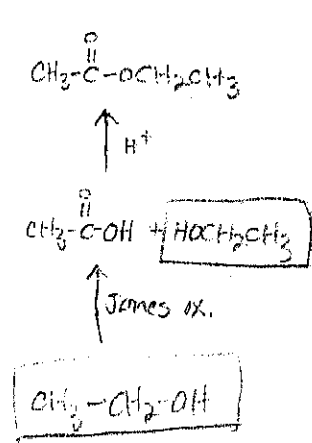 O
CH3-C-OCH2CH3
H+
O
CH3-C-OH + HOCH2CH3
Jones ox.
CH3-CH2-OH